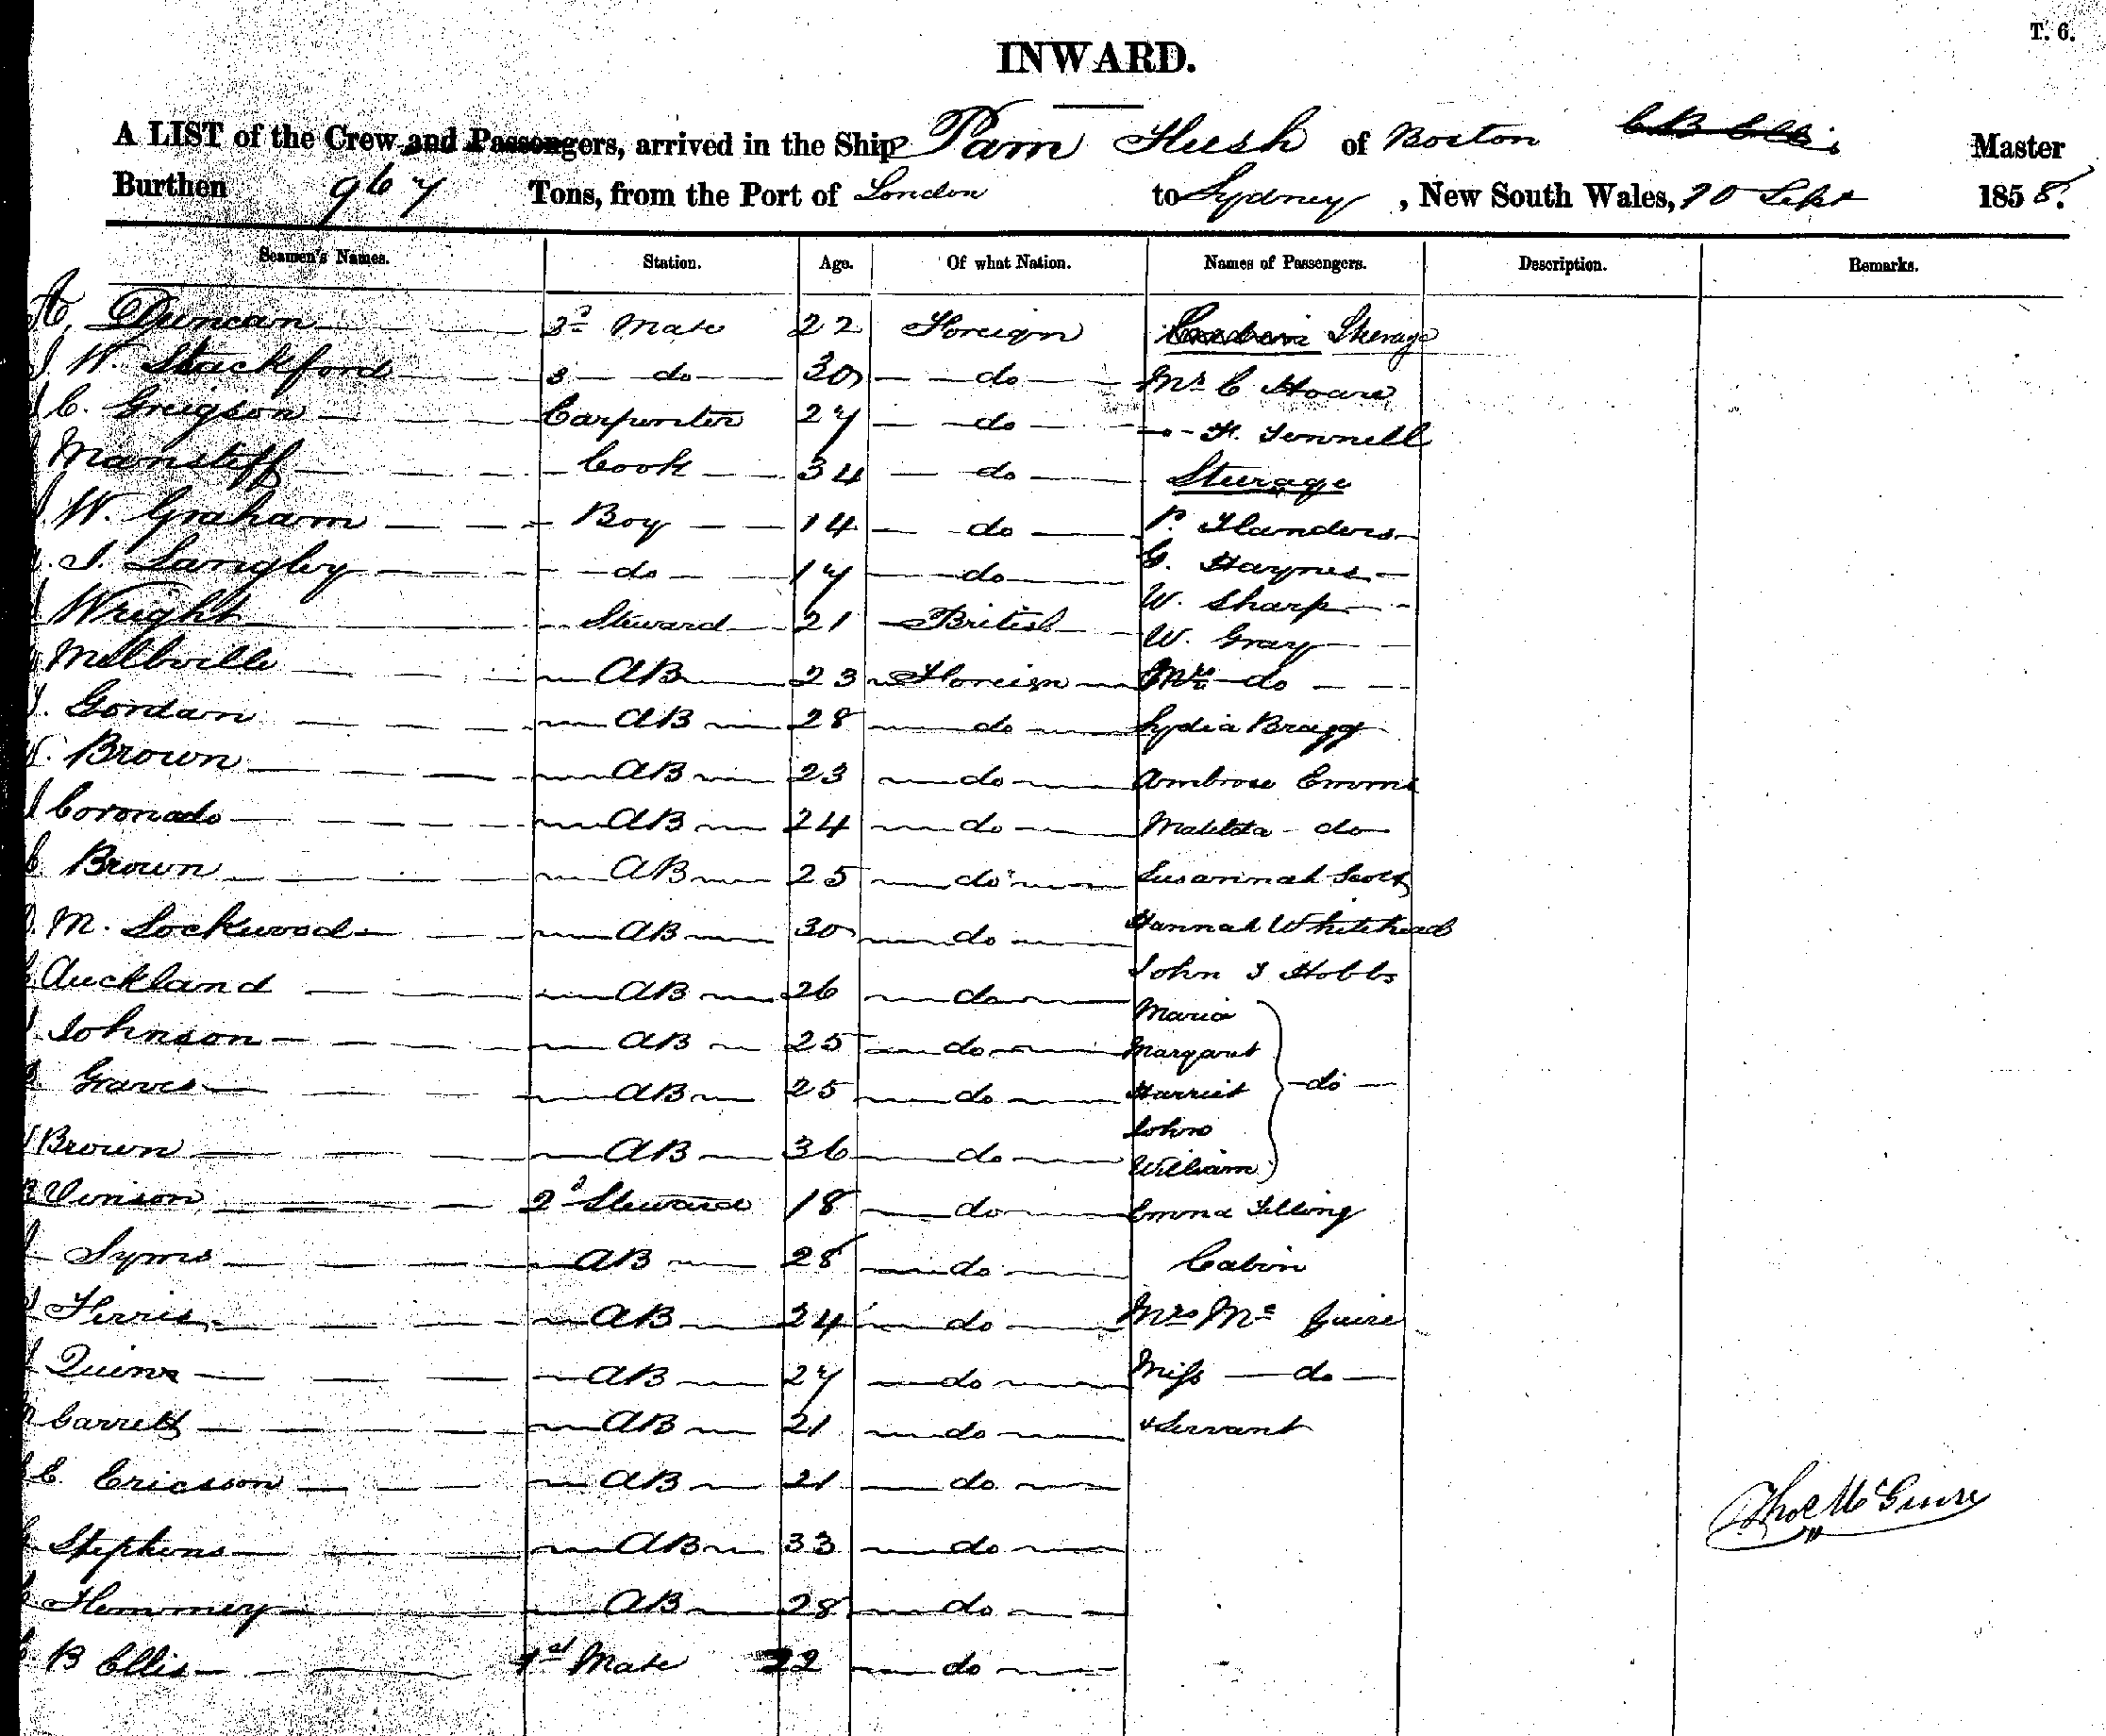 T. 6.
INWARD.
A LIST of the Crew and Passengers, arrived in the Ship Pam Flush of Boston C B Ellis Master
Burthen 967 Tons, from the Port of London to Sydney, New South Wales, 20 Sept 1858.
Seamen's Names. Station. Age. Of what Nation. Names of Passengers. Description. Remarks.
Duncan 2d Mate 22 Foreign Steerage
J W. Stackford 3 do 30 do Mr C Hoare
J C. Greigson Carpenter 27 do F. Fennell
Manstiff Cook 34 do Steerage
W. Graham Boy 14 do P. Flanders
J. Langley do 17 do G. Haynes
Wright Steward 21 British W. Sharp
W. Gray
Mellville AB 23 Foreign Mrs do
Gordan AB 28 do Lydia Bragg
Brown AB 23 do Ambrose Emms
Coronado AB 24 do Matilda do
Brown AB 25 do Susannah Scott
M. Lockwood AB 30 do Hannah Whitehead
Auckland AB 26 do John J Hobbs
Maria
Johnson AB 25 do Margaret
Graves AB 25 do Harriet do
John
Brown AB 36 do William
Vinson 2d Steward 18 do Emma Filling
Syms AB 28 do Cabin
Ferris AB 24 do Mrs Mc Guire
Quinn AB 27 do Miss do
Garrett AB 21 do & Servant
C. Ericsson AB 21 do
Thos McGuire
Stephens AB 33 do
Flemmey AB 28 do
B Ellis 1st Mate 22 do